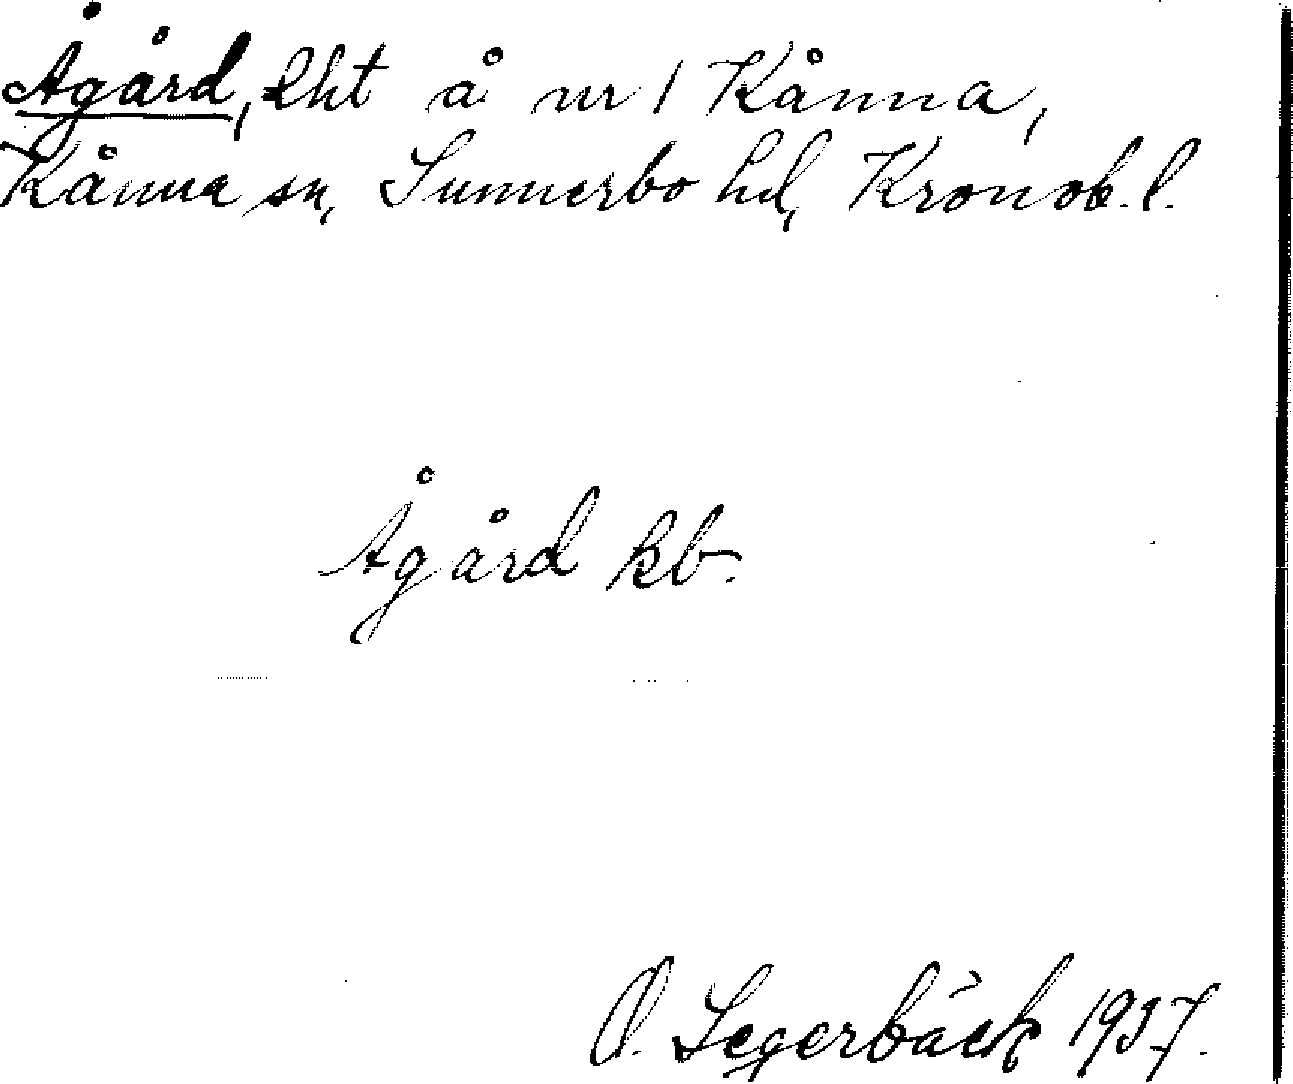 Ågård, lht å nr 1 Kånna,
Kånna sn, Sunnerbo hd, Kronob. l.
Ågård kb.
O. Segerbäck 1937.